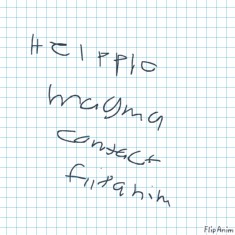 Helpplo
magma
contact
flipanim
FlipAnim